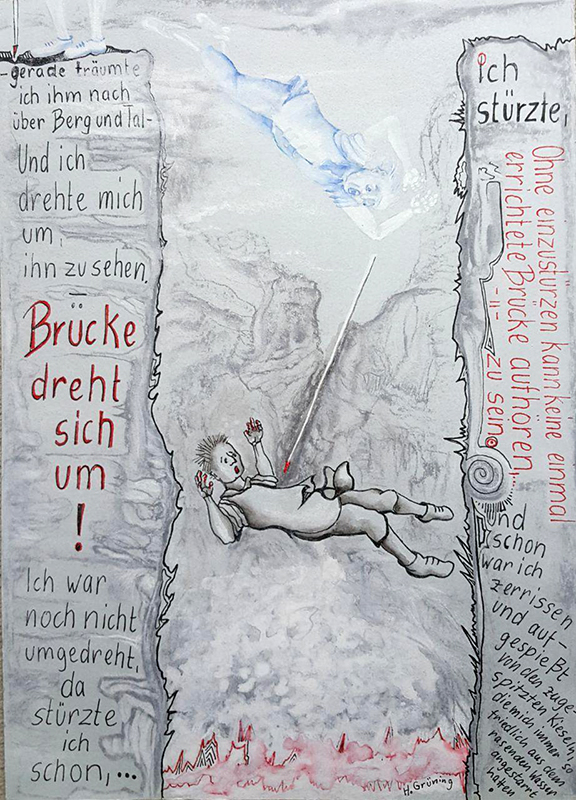 -gerade träumte
ich ihm nach
über Berg und Tal-
Und ich
drehte mich
um,
ihn zu sehen.
Brücke
dreht
sich
um
!
Ich war
noch nicht
umgedreht,
da
stürzte
ich
schon,...
ich
stürzte,
Ohne einzustürzen kann keine einmal
errichtete Brücke aufhören,...
-"- zu sein.
und
schon
war ich
zerrissen
und auf-
gespießt
von den zuge-
spitzten Kieseln,
die mich immer so
friedlich aus dem
rasenden Wasser
angestarrt
hatten
H.Grüning